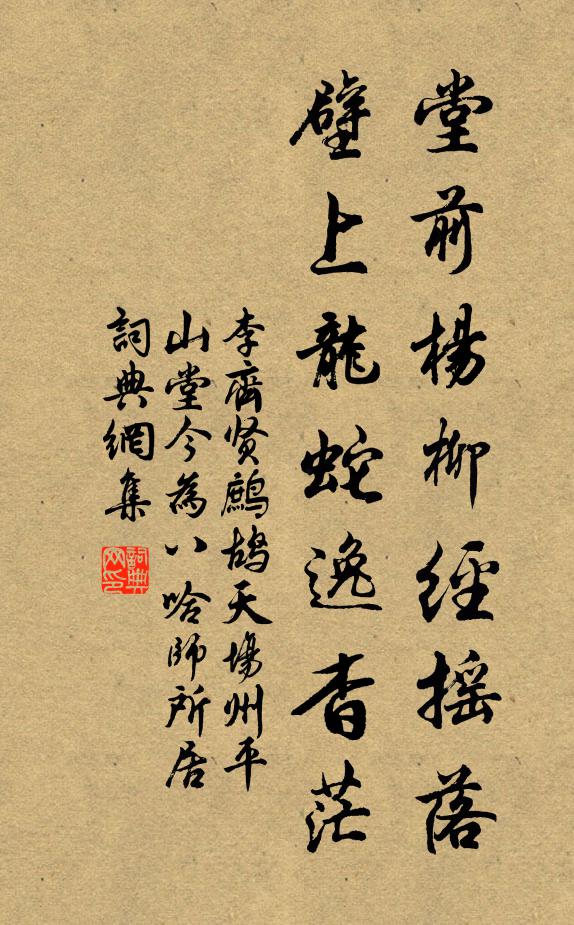 堂前楊柳經摇落
壁上龍蛇逸杳茫
李齊贤鷓鴣天揚州平
山堂今為八哈師所居
詞典網集
詞典网印